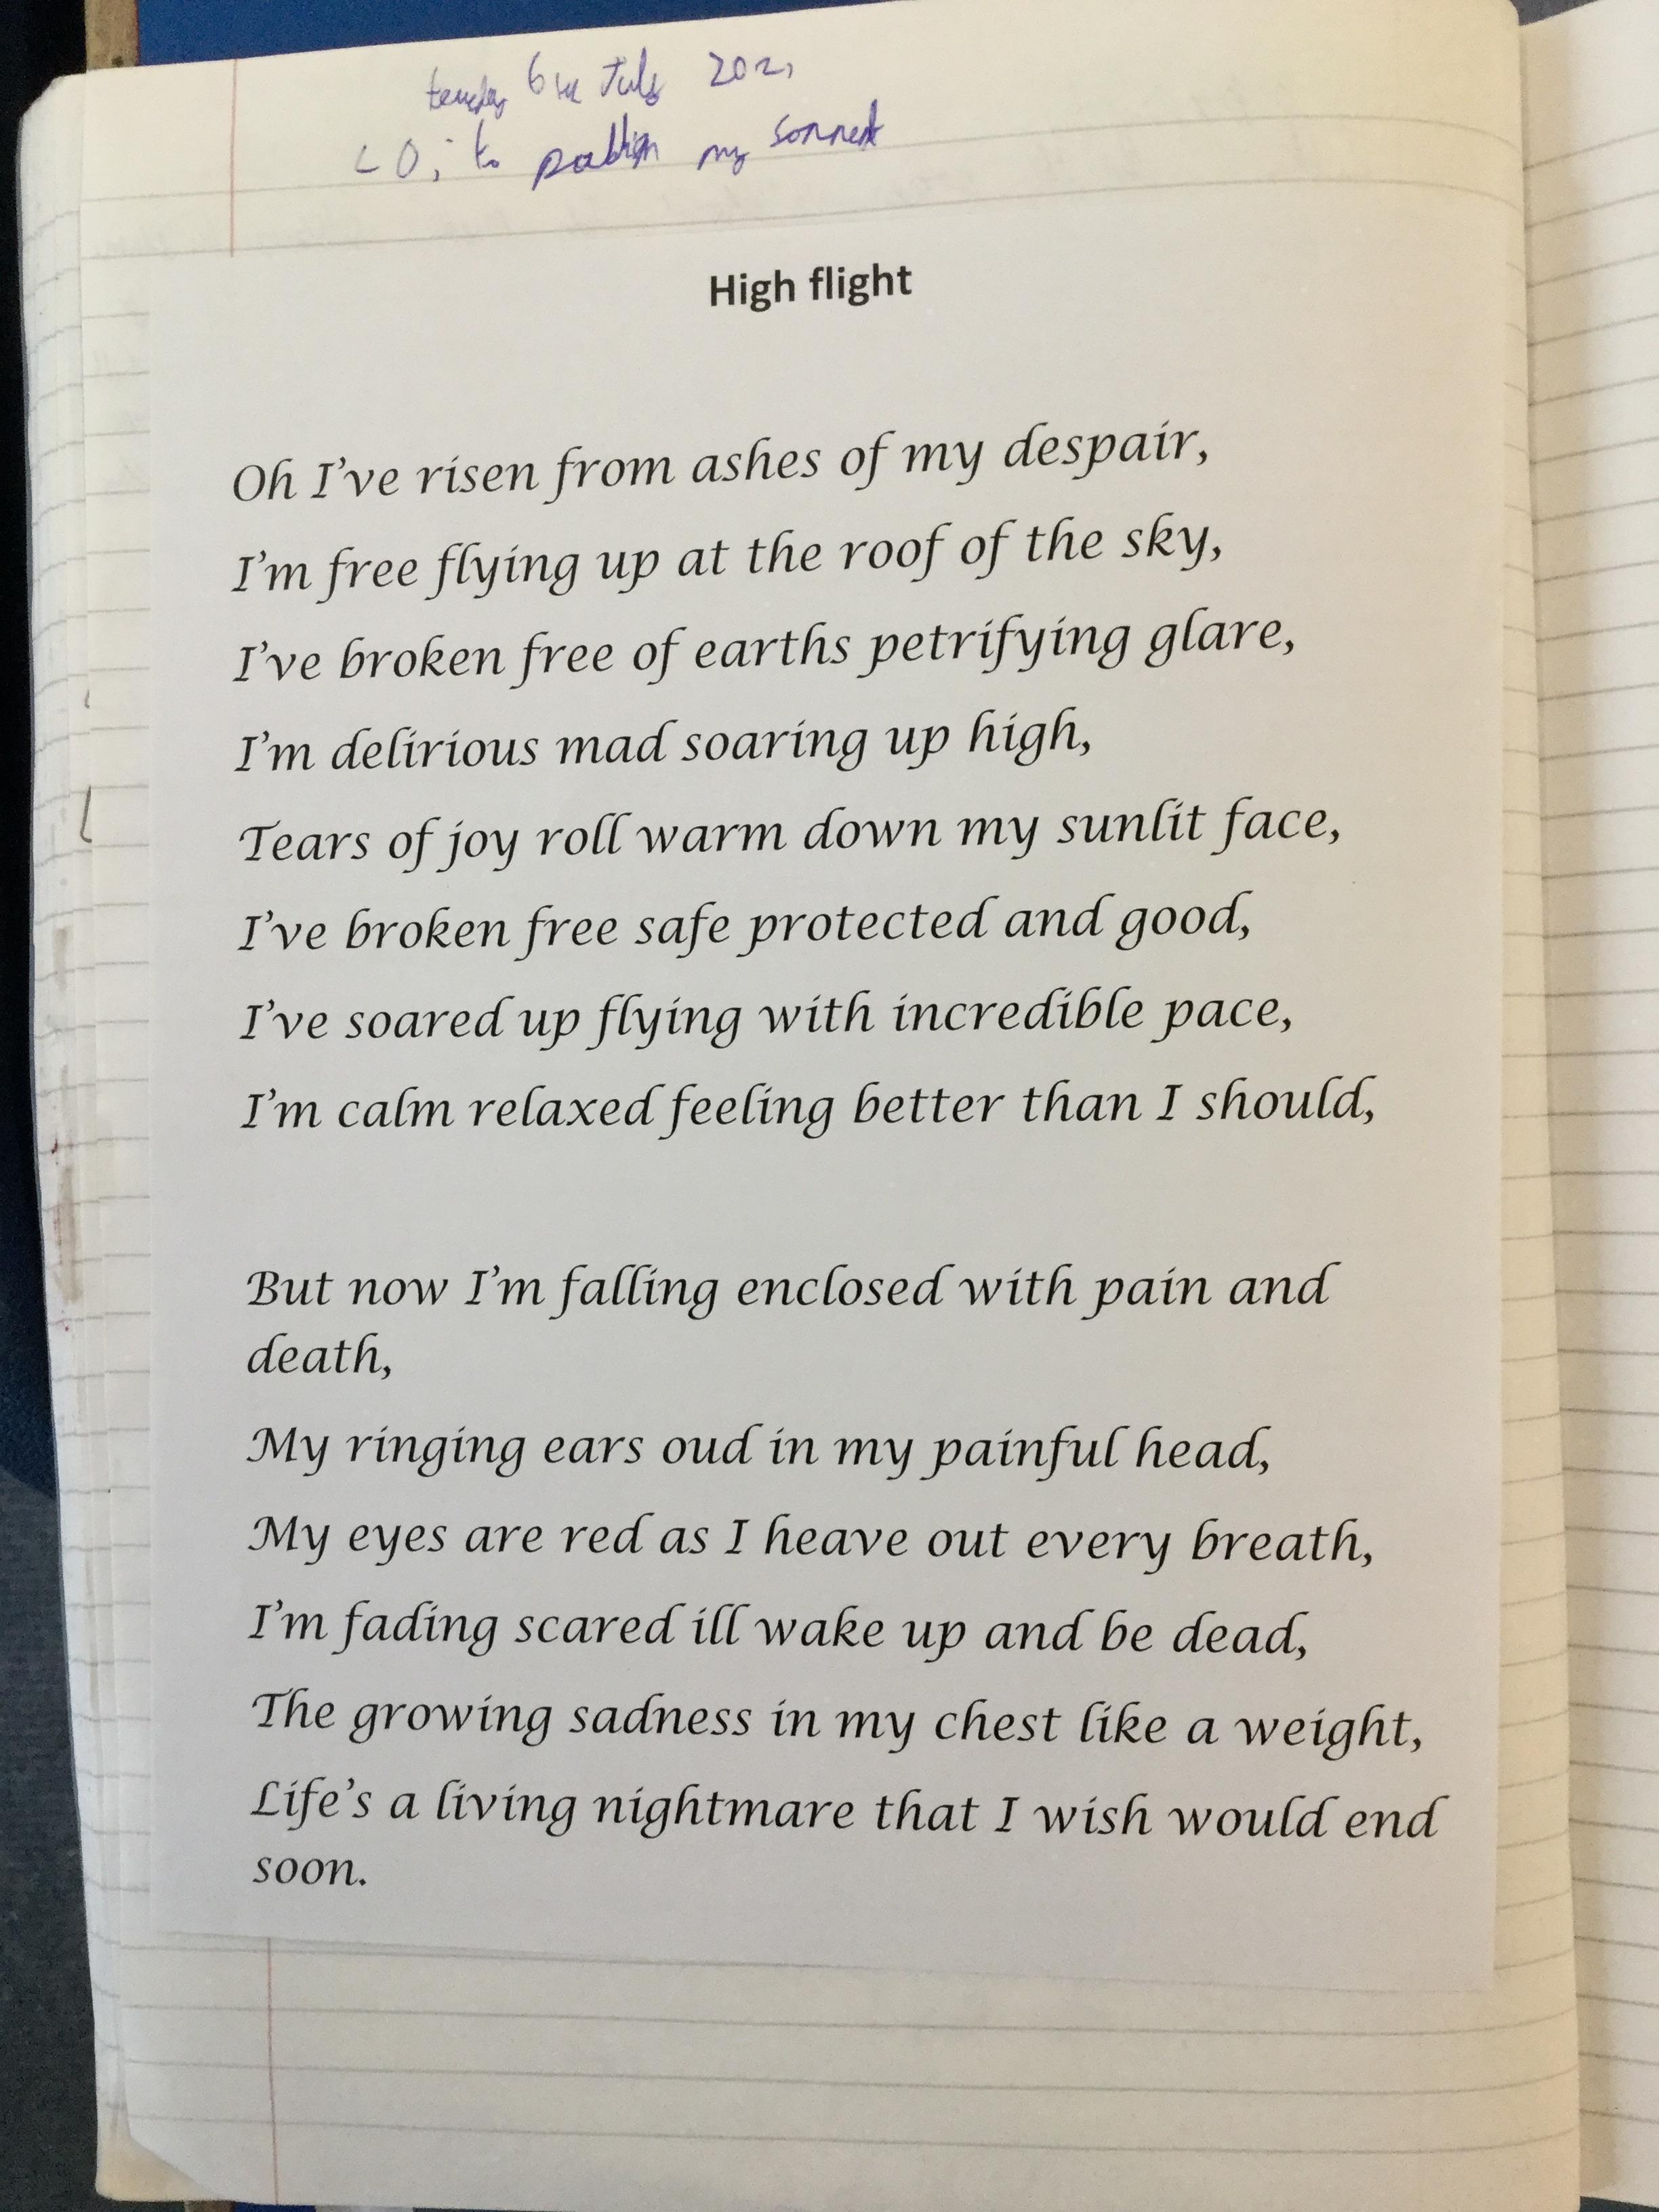 6th July 2021
LO; to publish my sonnet
High flight
Oh I've risen from ashes of my despair,
I'm free flying up at the roof of the sky,
I've broken free of earths petrifying glare,
I'm delirious mad soaring up high,
Tears of joy roll warm down my sunlit face,
I've broken free safe protected and good,
I've soared up flying with incredible pace,
I'm calm relaxed feeling better than I should,
But now I'm falling enclosed with pain and
death,
My ringing ears oud in my painful head,
My eyes are red as I heave out every breath,
I'm fading scared ill wake up and be dead,
The growing sadness in my chest like a weight,
Life's a living nightmare that I wish would end
soon.